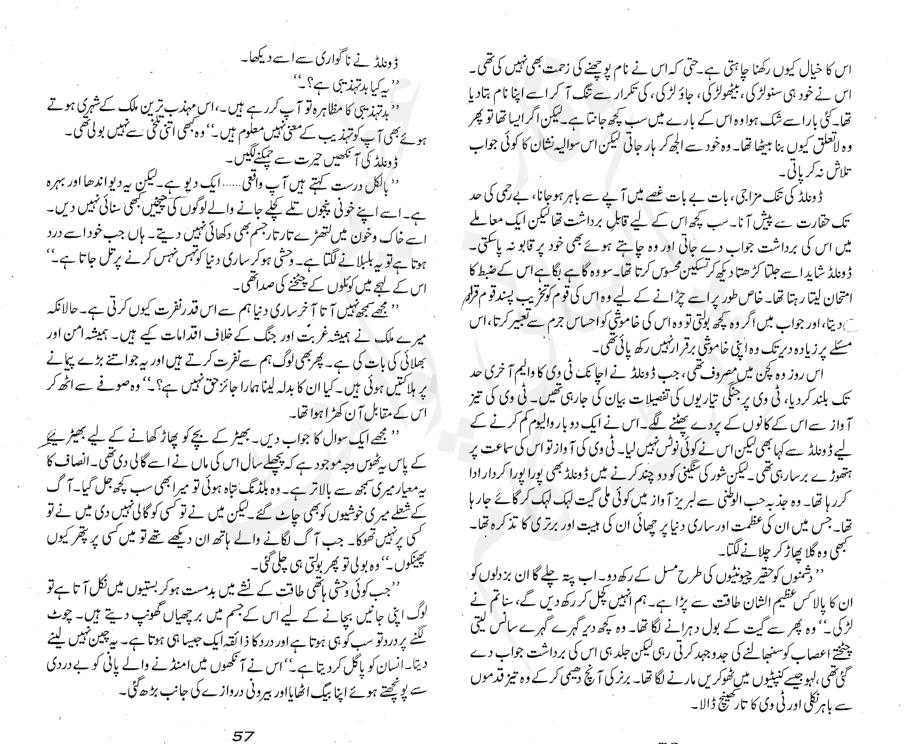 اس کا خیال کیوں رکھنا چاہتی ہے۔ حتیٰ کہ اس نے نام پوچھنے کی زحمت بھی نہیں کی تھی۔
اس نے خود ہی سنو لڑکی، بیٹھو لڑکی، جاؤ لڑکی، کی تکرار سے تنگ آ کر اسے اپنا نام بتا دیا
تھا۔ کئی بار اسے شک ہوا وہ اس کے بارے میں سب کچھ جانتا ہے۔ لیکن اگر ایسا تھا تو پھر
وہ لاتعلق کیوں بنا بیٹھا تھا۔ وہ خود سے الجھ کر ہار جاتی لیکن اس سوالیہ نشان کا کوئی جواب
تلاش نہ کر پاتی۔
ڈونلڈ کی تنک مزاجی، بات بے بات غصے میں آپے سے باہر ہو جانا، بے رحمی کی حد
تک حقارت سے پیش آنا۔ سب کچھ اس کے لیے قابل برداشت تھا لیکن ایک معاملے
میں اس کی برداشت جواب دے جاتی اور وہ چاہتے ہوئے بھی خود پر قابو نہ پا سکتی۔
ڈونلڈ شاید اسے جلتا کڑھتا دیکھ کر تسکین محسوس کرتا تھا۔ سو وہ گاہے بگاہے اس کے ضبط کا
امتحان لیتا رہتا تھا۔ خاص طور پر اسے چڑانے کے لیے وہ اس کی قوم کو تخریب پسند قوم قرار
دیتا، اور جواب میں اگر وہ کچھ نہ بولتی تو وہ اس کی خاموشی کو احساس جرم سے تعبیر کرتا، اس
مسئلے پر زیادہ دیر تک وہ اپنی خاموشی برقرار نہیں رکھ پائی تھی۔
اس روز وہ کچن میں مصروف تھی، جب ڈونلڈ نے اچانک ٹی وی کا والیم آخری حد
تک بلند کر دیا، ٹی وی پر جنگی تیاریوں کی تفصیلات بیان کی جا رہی تھیں۔ ٹی وی کی تیز
آواز سے اس کے کانوں کے پردے پھٹنے لگے۔ اس نے ایک دو بار والیوم کم کرنے کے
لیے ڈونلڈ سے کہا بھی لیکن اس نے کوئی نوٹس نہیں لیا۔ ٹی وی کی آواز تو اس کی سماعت پر
ہتھوڑے برسا رہی تھی۔ لیکن شور کی سنگینی کو دو چند کرنے میں ڈونلڈ بھی پورا پورا کردار ادا
کر رہا تھا۔ وہ جذبہ حب الوطنی سے لبریز آواز میں کوئی ملی گیت لہک لہک کر گائے جا رہا
تھا۔ جس میں ان کی عظمت اور ساری دنیا پر چھائی ان کی ہیبت اور برتری کا تذکرہ تھا۔
کبھی وہ گلا پھاڑ کر چلانے لگتا۔
’’دشمنوں کو حقیر چیونٹیوں کی طرح مسل کے رکھ دو۔ اب پتہ چلے گا ان بزدلوں کو
ان کا پالا کس عظیم الشان طاقت سے پڑا ہے۔ ہم انہیں کچل کر رکھ دیں گے، سنا تم نے
لڑکی۔‘‘ وہ پھر سے گیت کے بول دہرانے لگا تھا۔ وہ کچھ دیر گہرے گہرے سانس لیتی
چٹختے اعصاب کو سنبھالنے کی جدوجہد کرتی رہی لیکن جلد ہی اس کی برداشت جواب دے
گئی تھی، لہو جیسے کنپٹیوں میں ٹھوکریں مارنے لگا تھا۔ برنر کی آنچ دھیمی کر کے وہ تیز قدموں
سے باہر نکلی اور ٹی وی کا تار کھینچ ڈالا۔
ڈونلڈ نے ناگواری سے اسے دیکھا۔
’’یہ کیا بدتہذیبی ہے؟۔‘‘
’’بدتہذیبی کا مظاہرہ تو آپ کر رہے ہیں۔، اس مہذب ترین ملک کے شہری ہوتے
ہوئے بھی آپ کو تہذیب کے معنی نہیں معلوم ہیں۔‘‘ وہ کبھی اتنی تلخی سے نہیں بولی تھی۔
ڈونلڈ کی آنکھیں حیرت سے چمکنے لگیں۔
’’بالکل درست کہتے ہیں آپ واقعی...... ایک دیو ہے۔ لیکن یہ دیو اندھا اور بہرہ
ہے۔ اسے اپنے خونی پنجوں تلے کچلے جانے والے لوگوں کی چیخیں کبھی سنائی نہیں دیں۔
اسے خاک و خون میں لتھڑے تار تار جسم بھی دکھائی نہیں دیتے۔ ہاں جب خود اسے درد
ہوتا ہے تو یہ بلبلانے لگتا ہے۔ وحشی ہو کر ساری دنیا کو تہس نہس کرنے پر تل جاتا ہے۔‘‘
اس کے لہجے میں کوئلوں کے چٹخنے کی صدا تھی۔
’’مجھے سمجھ نہیں آتا آخر ساری دنیا ہم سے اس قدر نفرت کیوں کرتی ہے۔ حالانکہ
میرے ملک نے ہمیشہ غربت اور جنگ کے خلاف اقدامات کیے ہیں۔ ہمیشہ امن اور
بھلائی کی بات کی ہے۔ پھر بھی لوگ ہم سے نفرت کرتے ہیں اور یہ جو اتنے بڑے پیمانے
پر ہلاکتیں ہوئی ہیں۔ کیا ان کا بدلہ لینا ہمارا جائز حق نہیں ہے؟۔‘‘ وہ صوفے سے اٹھ کر
اس کے مقابل آن کھڑا ہوا تھا۔
’’مجھے ایک سوال کا جواب دیں۔ بھیڑ کے بچے کو پھاڑ کھانے کے لیے بھیڑیئے
کے پاس یہ ٹھوس وجہ موجود ہے کہ پچھلے سال اس کی ماں نے اسے گالی دی تھی۔ انصاف کا
یہ معیار میری سمجھ سے بالاتر ہے۔ وہ بلڈنگ تباہ ہوئی تو میرا بھی سب کچھ جل گیا۔ آگ
کے شعلے میری خوشیوں کو بھی چاٹ گئے۔ لیکن میں نے تو کسی کو گالی نہیں دی میں نے تو
کسی پر نہیں تھوکا۔ جب آگ لگانے والے ہاتھ ان دیکھے تھے تو میں کسی پر پتھر کیوں
پھینکوں۔‘‘ وہ بولی تو پھر بولتی ہی چلی گئی۔
’’جب کوئی وحشی ہاتھی طاقت کے نشے میں بدمست ہو کر بستیوں میں نکل آتا ہے تو
لوگ اپنی جانیں بچانے کے لیے اس کے جسم میں برچھیاں گھونپ دیتے ہیں۔ چوٹ
لگنے پر درد تو سب کو ہی ہوتا ہے اور درد کا ذائقہ ایک جیسا ہی ہوتا ہے۔ یہ چین نہیں لینے
دیتا۔ انسان کو پاگل کر دیتا ہے۔‘‘ اس نے آنکھوں میں امنڈنے والے پانی کو بے دردی
سے پونچھتے ہوئے اپنا بیگ اٹھایا اور بیرونی دروازے کی جانب بڑھ گئی۔
57